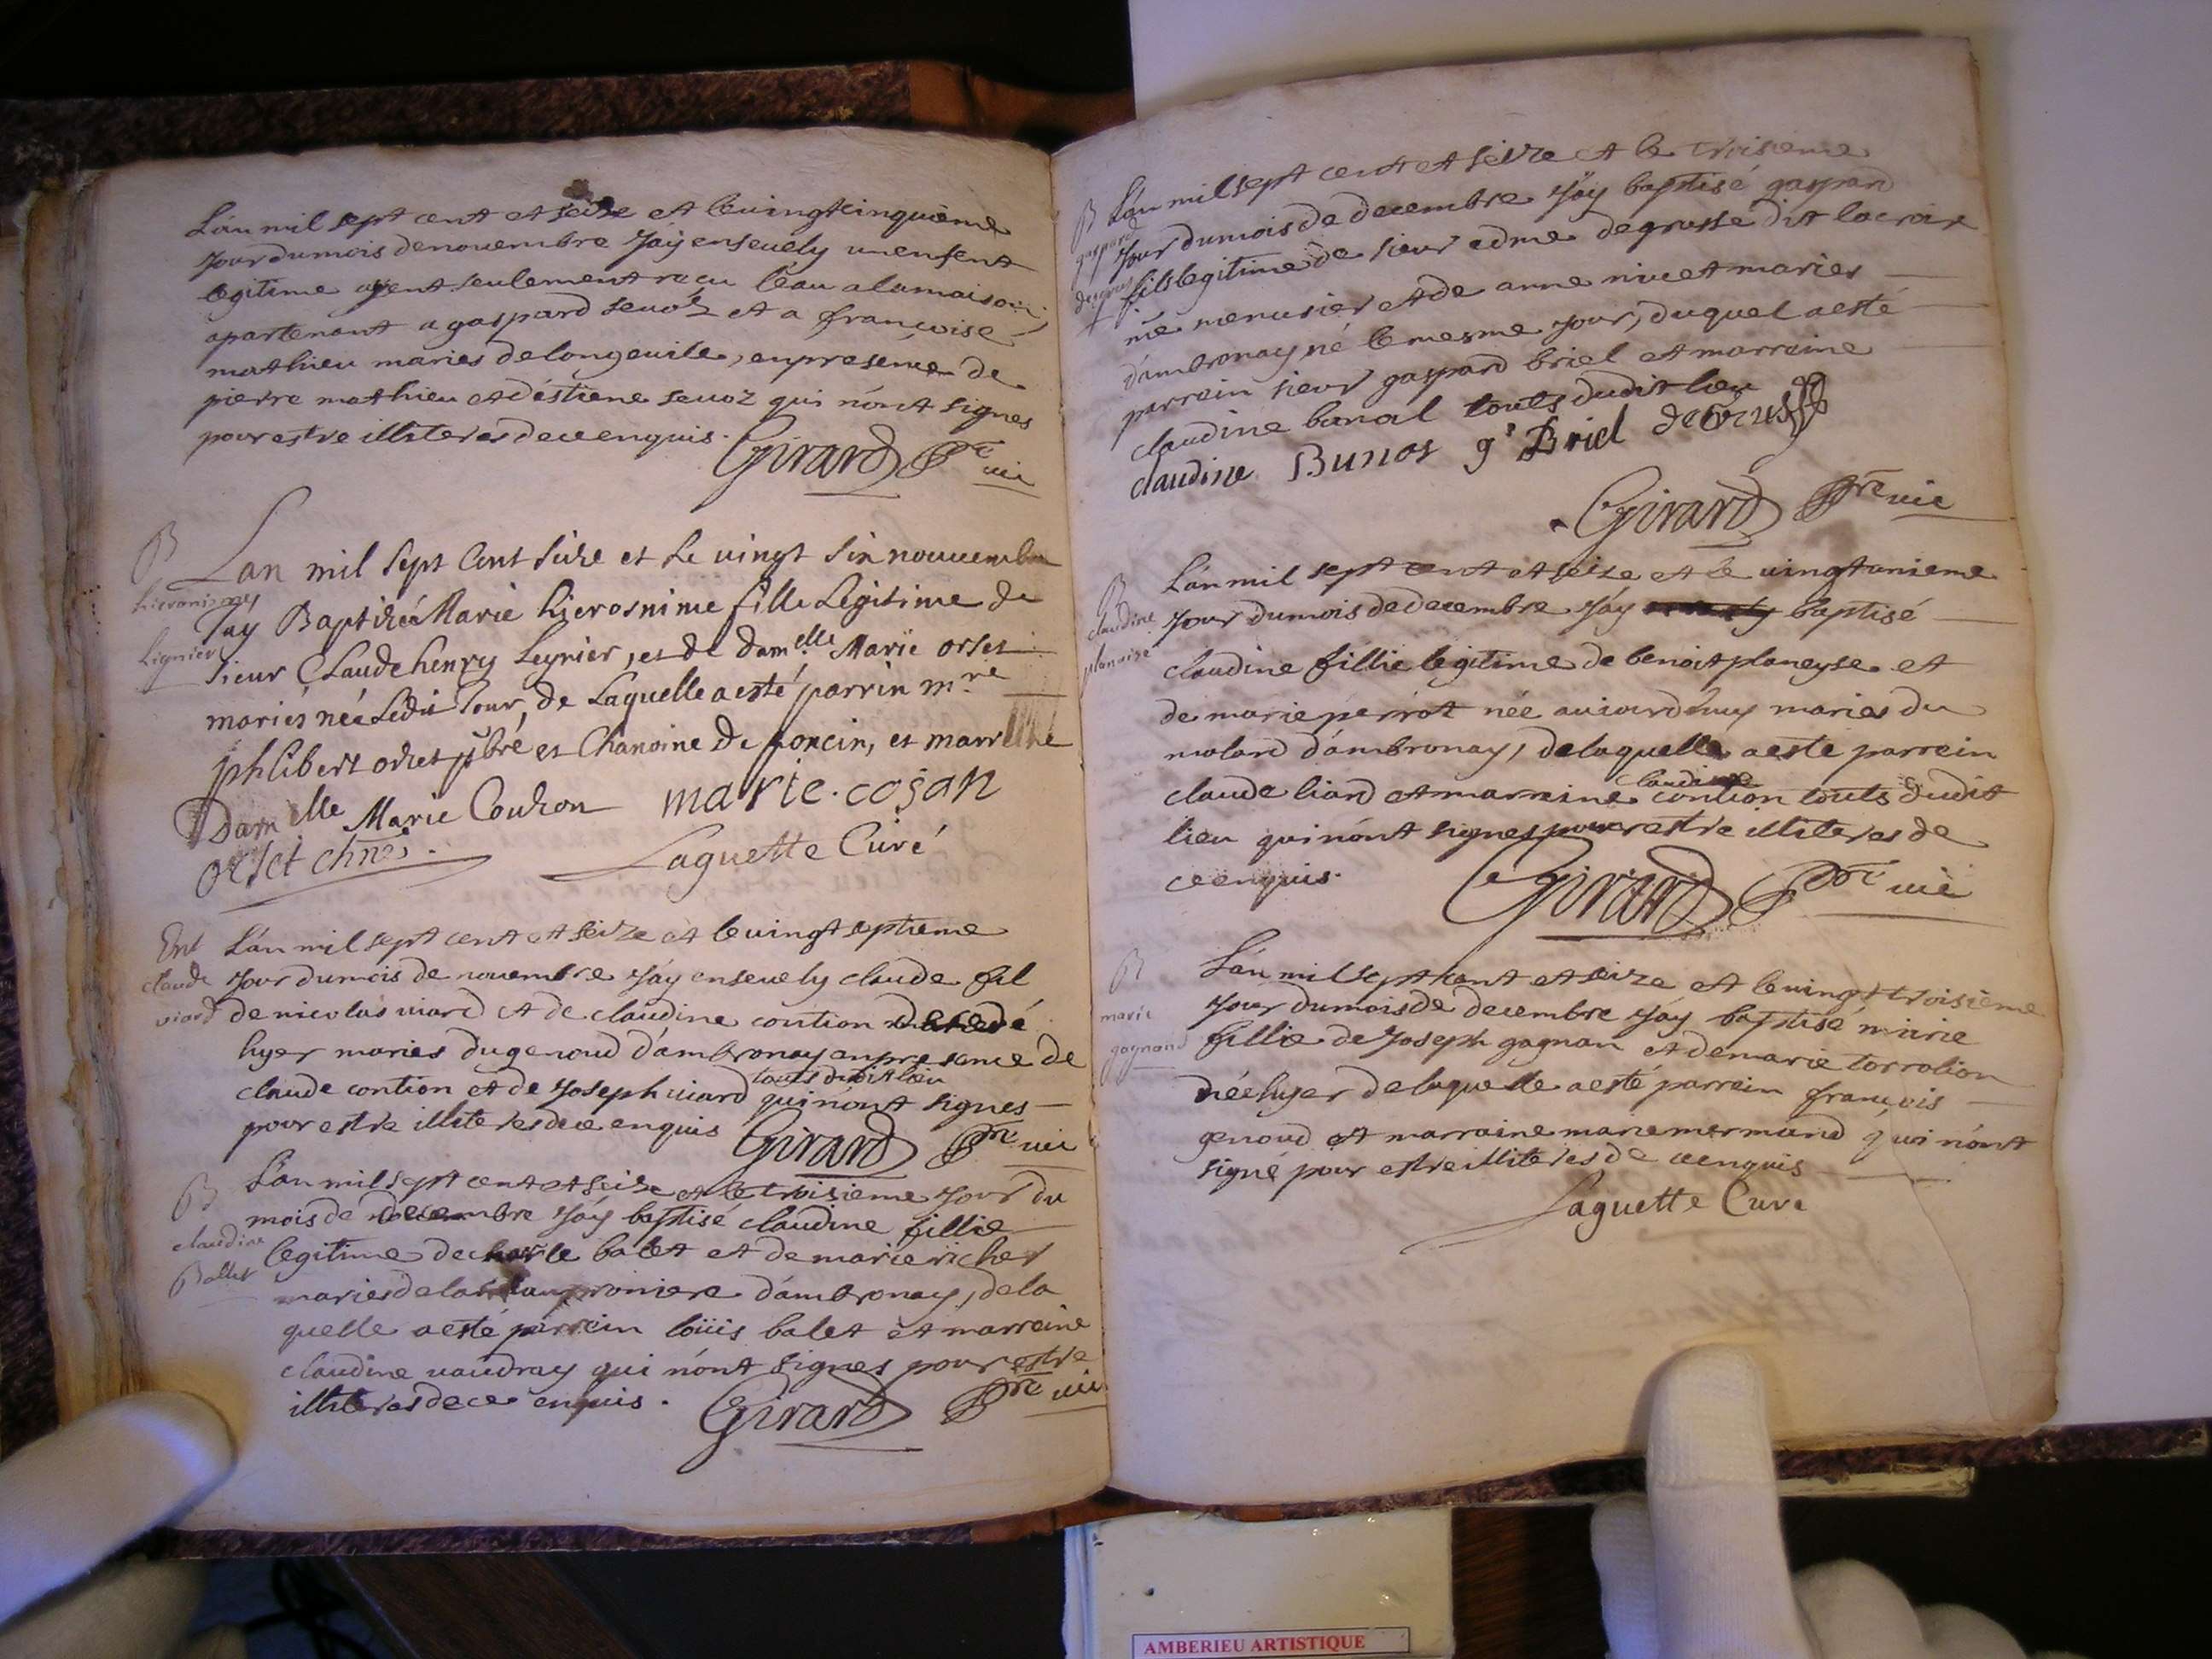 L'an mil sept cent et seize et le vingtcinquieme
jour du mois de novembre j'ay ensevely un enfent
legitime ayent seulement reçu l'eau a la maison,
apartenant a gaspard sevoz et a françoise
mathieu maries de longeville, en presence de
pierre mathieu et d'estiene sevoz qui n'ont signes
pour estre illiteres de ce enquis.
Girard Ptre vic
B
hieronime
Lignier
Lan mil sept Cent seize et Le vingt six nouvembre
Jay Baptizéa Marie hierosnime fille Legitime de
sieur Claude henry Leynier, et de damelle Marie orset
mariés née Ledit Jour, de Laquelle a esté parrin mre
phlibert orset pbre et Chanoine de poncin, et marreine
Damelle Marie Couzon marie. cosan
orset chne. Laguette Curé
Ent
claude
viard
L'an mil sept cent et seize et le vingt septieme
jour du mois de novembre j'ay ensevely claude fil
de nicolas viard et de claudine contion decedé
hyer maries du genoud d'ambronay en presence de
claude contion et de joseph viard touts dudit lieu qui n'ont signes
pour estre illiteres de ce enquis Girard Ptre vic
B
claudine
Ballet
L'an mil sept cent et seize et le troisieme jour du
mois de decembre j'ay baptisé claudine fillie
legitime de charle balet et de marie richer
maries de la d'ambronay, de la
quelle a esté parrein loüis balet et marreine
claudine vaudray qui n'ont signes pour estre
illiteres de ce enquis.
Girard Ptre vic
B
gaspard
degrus
L'an mil sept cent et seize et le troisieme
jour du mois de decembre j'ay baptisé gaspard
fils legitime de sieur edme degrusse dit lacroix
me menusier et de anne nivet maries
d'ambronay né le mesme jour, duquel a esté
parrein sieur gaspard briel et marreine
claudine banal touts dudit lieu
claudine Bunos gs Briel deGruss
Girard Ptre vic
B
claudine
planaise
L'an mil sept cent et seize et le vingt unieme
jour du mois de decembre j'ay baptisé
claudine fillie legitime de benoit planeyse et
de marie perrot née aujourdhuy maries du
molard d'ambronay, de laquelle a esté parrein
claude liard et marreine claudine contion touts dudit
lieu qui n'ont signes pour estre illiteres de
ce enquis.
Girard Ptre vic
B
marie
gagnand
L'an mil sept cent et seize et le vingt troisieme
jour du mois de decembre j'ay baptisé marie
fillie de Joseph gagnan et de marie torralion
née hyer de laquelle a esté parrein françois
genoud et marraine marie mermand qui n'ont
signé pour estre illiteres de ce enquis
Laguette Curé
AMBERIEU ARTISTIQUE